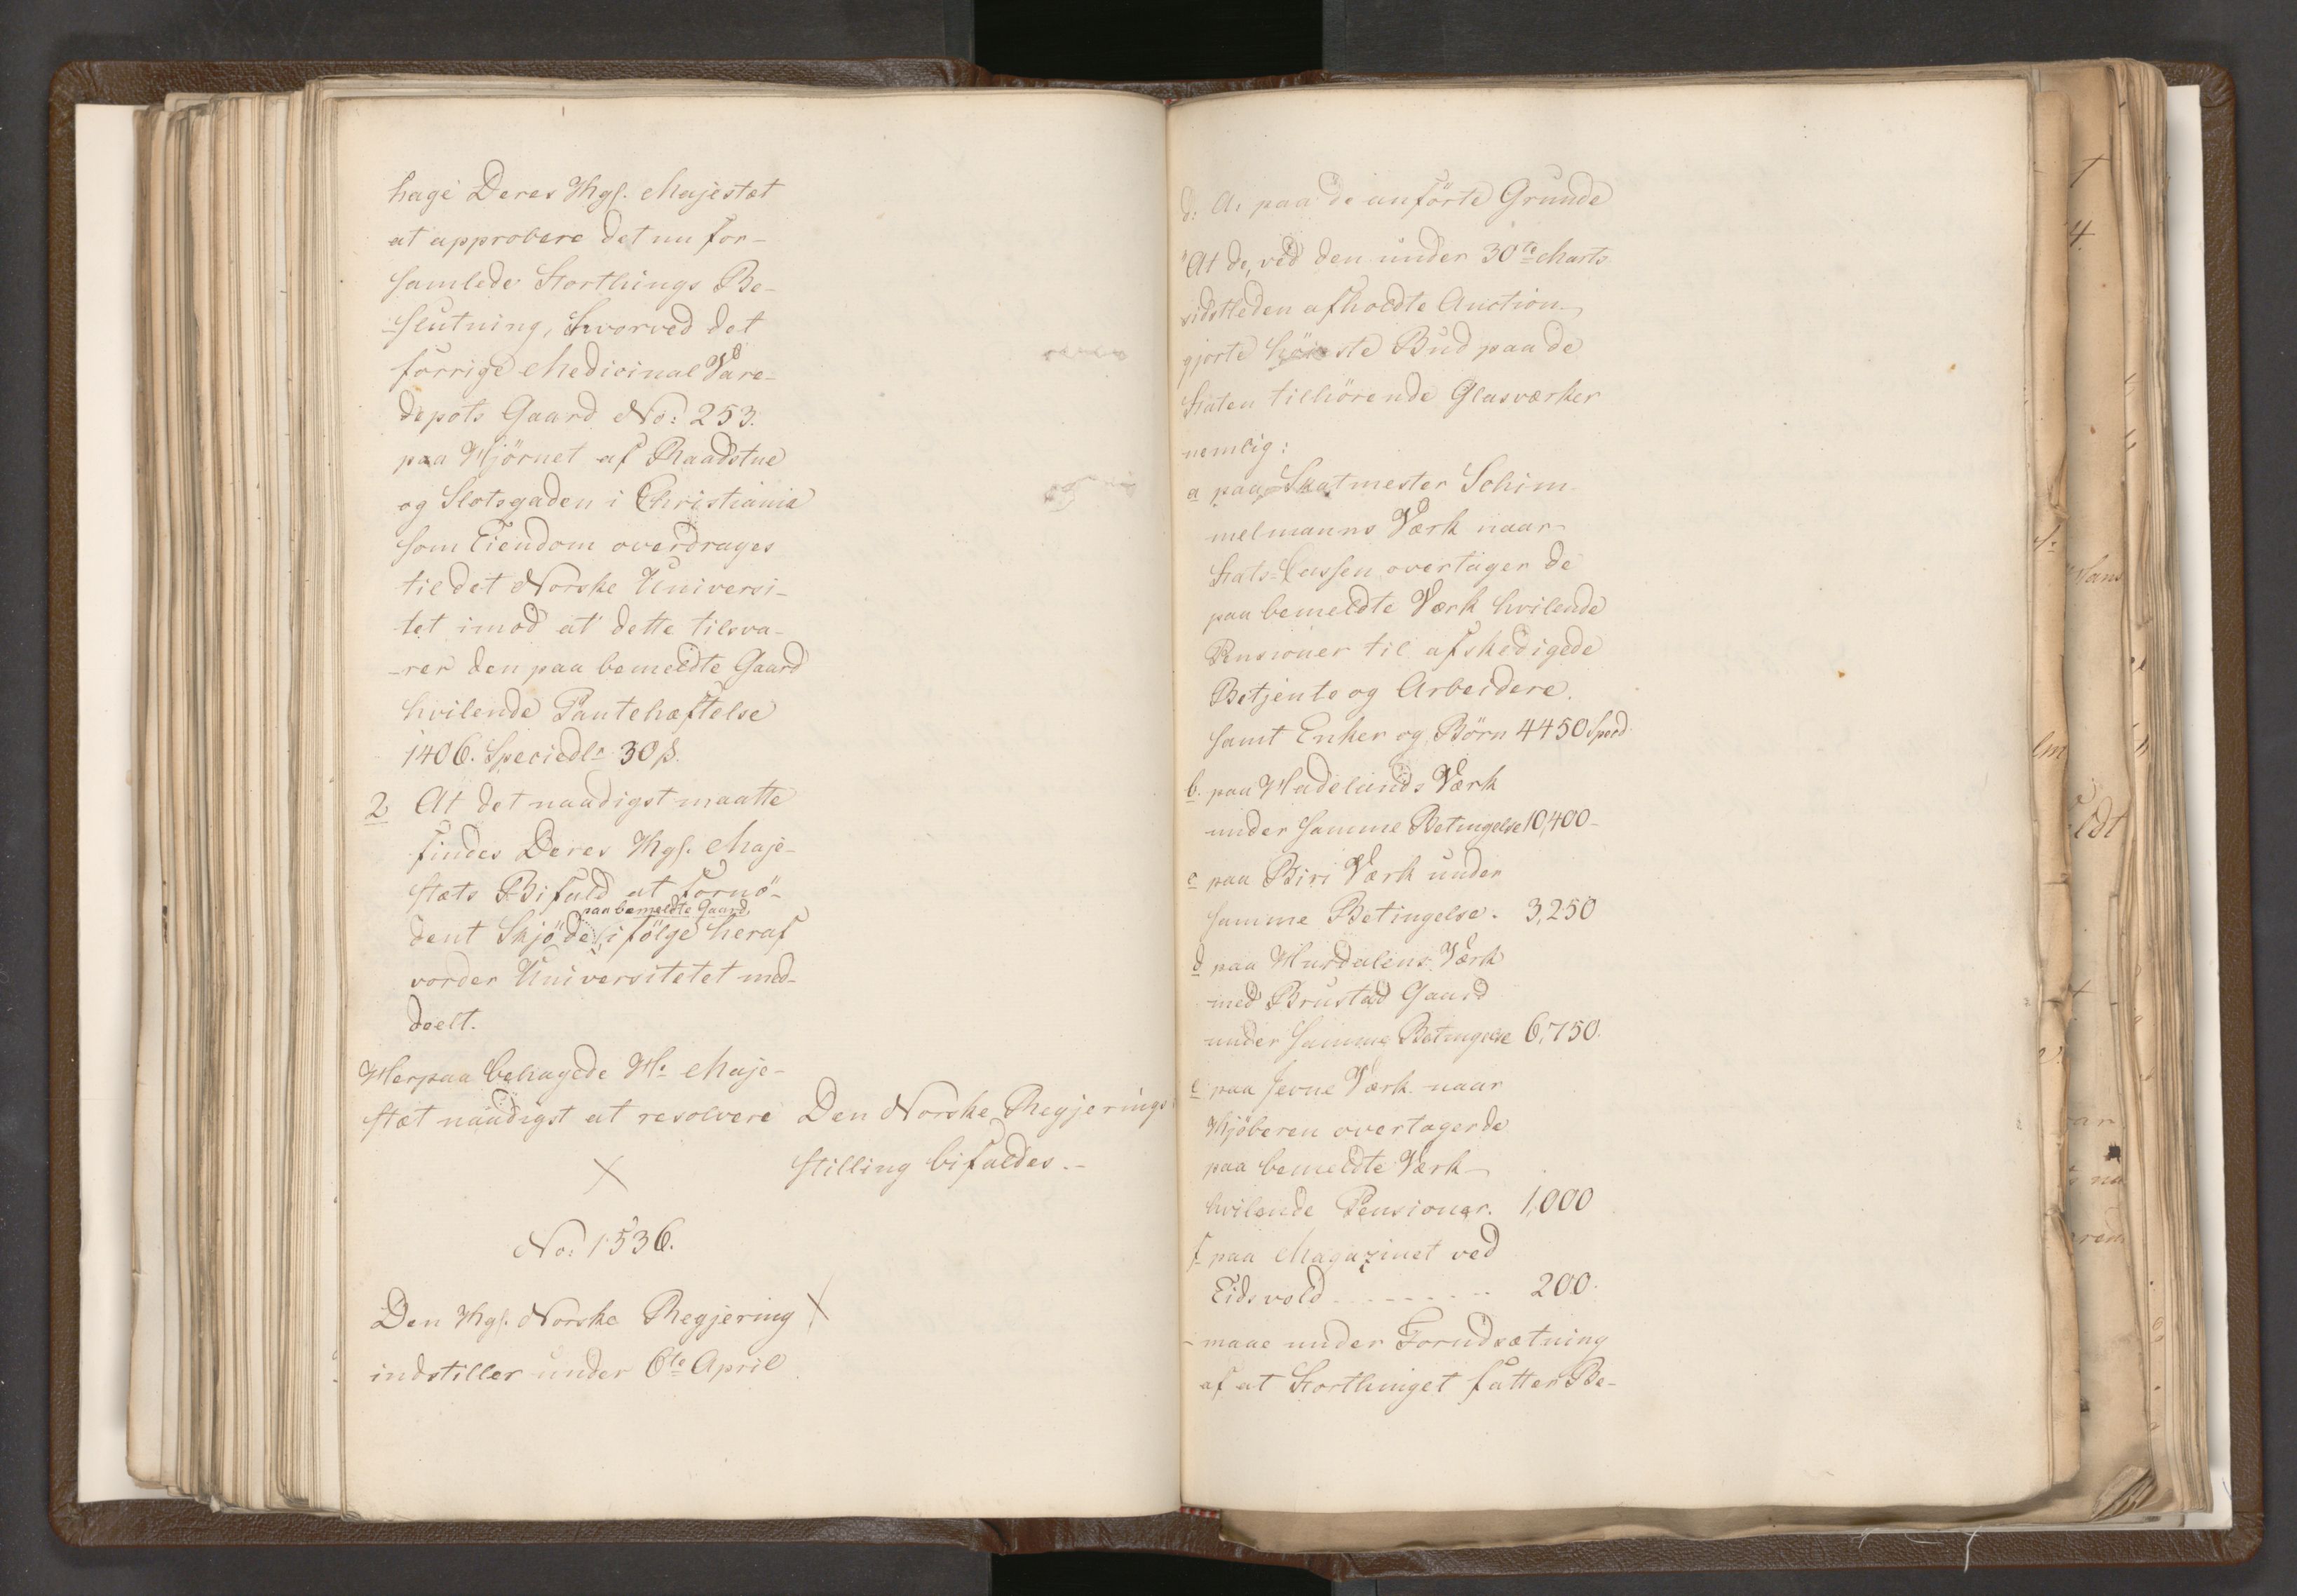 hage Deres Kgl. Majestæt
at approbere det nu for-
samlede Storthings Be-
-slutning, hvorved det
forrige Medicinal Vare-
depots Gaard No: 253.
paa Hjörnet af Raadstue
og Slotsgaden i Christiania
som Eiendom overdrages
til det Norske Universi-
tet imod at dette tilsva-
-rer den paa bemeldte Gaard
hvilende Pantehæftelse
1406. Speciedlr 30 ß.
2 At det naadigst maatte
findes Deres Kgl. Maje-
stæts Bifald at fornö-
paa bemeldte Gaard
dent Skjöde i fölge heraf
vorder Universitetet med-
deelt.
Herpaa behagede H: Maje-
stæt naadigst at resolvere Den Norske Regjerings
stilling bifaldes.-
No: 1536.
Den Kgl. Norske Regjering
indstiller under 6te April
d: A: paa de anförte Grunde
"At de, ved den under 30te Marts
sidstleden afholdte Auction
gjorte höieste Bud paa de
Staten tilhörende Glasværker
nemlig:
a paa Skatmester Schim-
melmanns Værk naar
Stats-Cassen overtager de
paa bemeldte Værk hvilende
Pensioner til afskedigede
Betjente og Arbeidere
samt Enker og Börn 4450 Specd
b. paa Hadelands Værk
under samme Betingelse 10,400-
c paa Biri Værk under
samme Betingelse. 3,250
d paa Hurdalens Værk
med Brustad Gaard
under samme Betingelse 6,750.
e paa Jevne Værk naar
Kjöberen overtager de
paa bemeldte Værk
hvilende Pensioner. 1,000
f paa Magazinet ved
Eidsvold - - - - - - - - 200.
- maae under Forudsætning
af at Storthinget fatter Be-